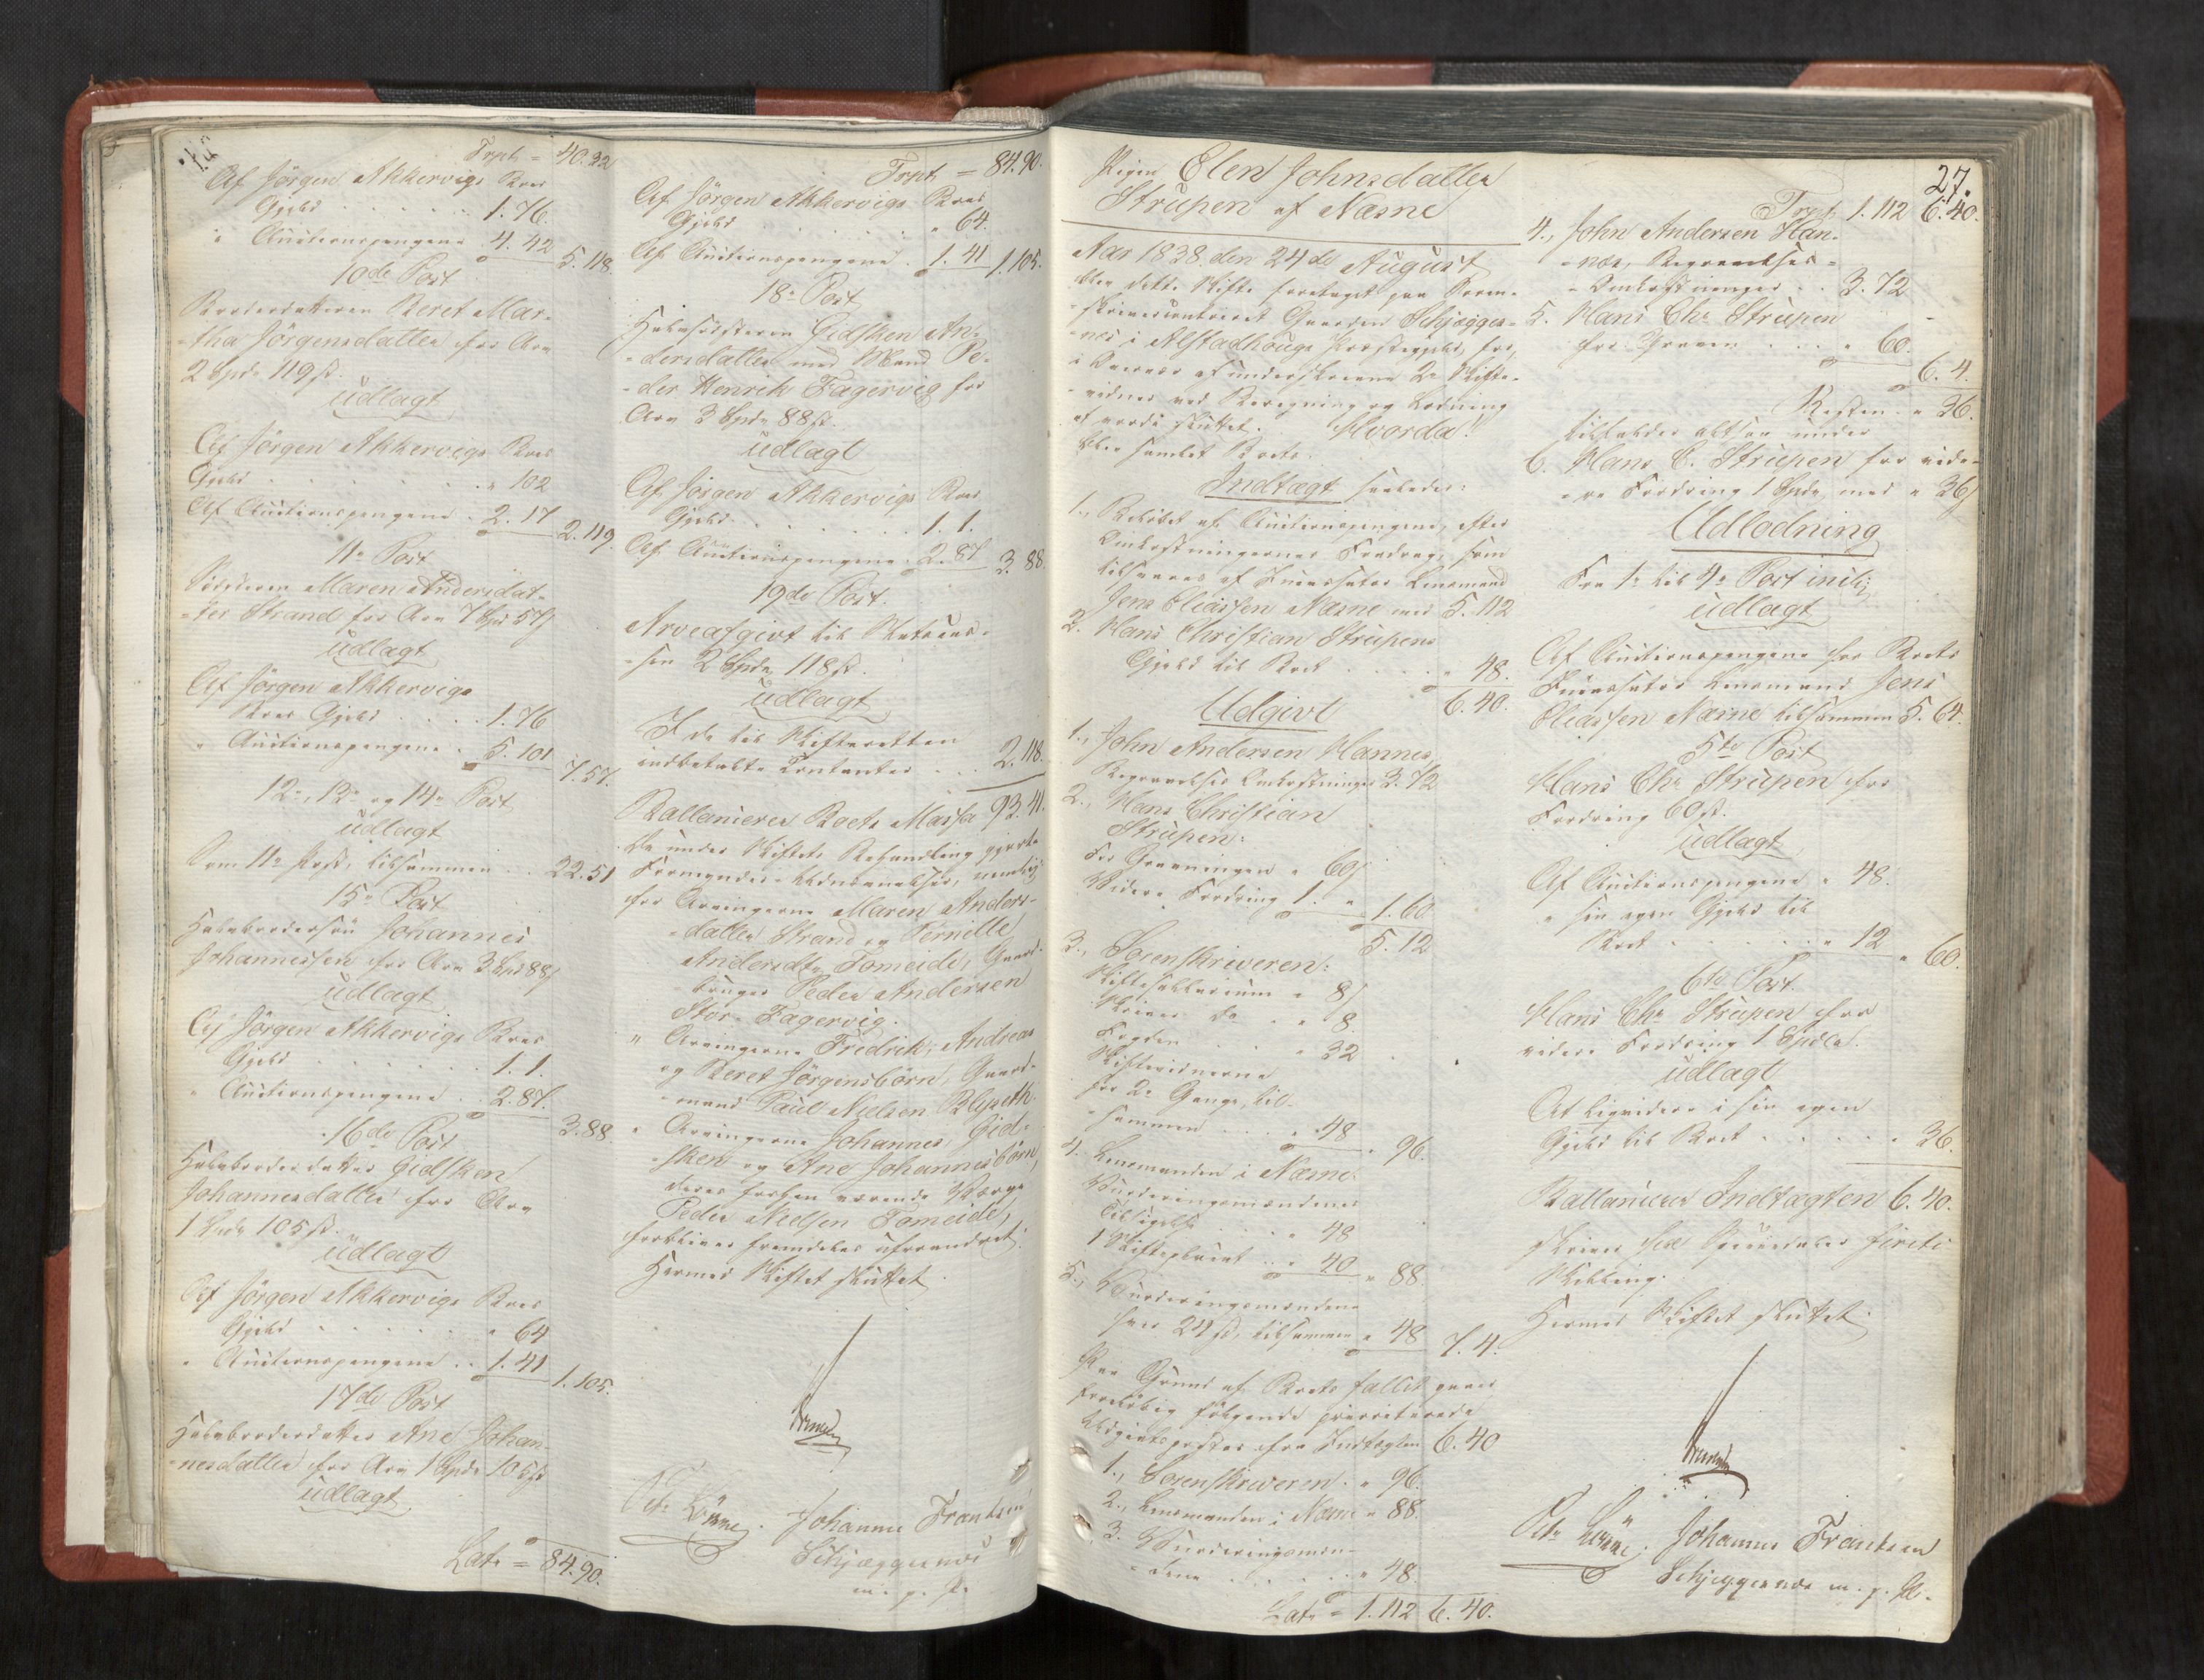 Trpt = 40.22
Af Jörgen Akkervigs Boes
Gjeld . . . . . . 1. 76.
" Auctionspengene 4. 42
5. 118
10de Post
Broderdatteren Beret Mar-
-tha Jörgensdatter for Arv
2 Spd 119 ß.
Udlagt
Af Jörgen Akkervigs Boes
Gjeld . . . . . . " 102
Af Auctionspengene . 2. 17
2. 119.
11te Post
Søsteren Maren Andersdat-
-ter Strand for Arv 7 Spd 57 ß
Udlagt
Af Jörgen Akkervigs
Boes Gjeld . . . . 1. 76
" Auctionspengene . 5. 101
7. 57.
12te, 13de og 14de Post
Udlagt
Som 11te Post, tilsammen . . 22. 51
15de Post
Halvbrodersøn Johannes
Johannessen for Arv 3 Spd 88 ß
Udlagt
Af Jörgen Akkervigs Boes
Gjeld . . . . . . 1. 1.
" Auctionspengene . . 2. 87.
3. 88
16de Post
Halvbroderdatter Gidsken
Johannesdatter for Arv
1 Spd 105 ß.
Udlagt
Af Jörgen Akkervigs Boes
Gjeld . . . . . . " 64
" Auctionspengene . . 1. 41
1. 105.
17de Post
Halvbroderdatter Ane Johan-
-nesdatter for Arv 1 Spd 105 ß
Udlagt
Lats = 84. 90.
Trpt = 84. 90.
Af Jörgen Akkervigs Boes
Gjeld . . . . . . " 64.
Af Auctionspengene . 1. 41
1. 105.
18de Post
Halvsøsteren Gidsken An-
-dersdatter med Mand Pe-
-der Henrik Fagervig for
Arv 3 Spd 88 ß.
Udlagt
Af Jörgen Akkervigs Boes
Gjeld . . . . . . 1. 1.
Af Auctionspengene . 2. 87
3. 88.
19de Post.
Arveafgivt til Statscas-
-sen 2 Spd 118 ß.
Udlagt
I de til Skifteretten
indbetalte Contanter . . . 2. 118.
Ballancerer Boets Massa 93. 41.
De under Skiftets Behandling gjorte
Formynder-Udnævnelser, nemlig
for Arvingerne Maren Anders-
-datter Strand og Pernille
Andersdtr Tomeide, Gaard-
-bruger Peder Andersen
Stor-Fagervig.
" Arvingerne Fredrik, Andreas
og Beret Jörgensbörn, Gaard-
-mand Paul Nielsen Blyseth.
" Arvingerne Johannes, Gid-
-sken og Ane Johannesbörn,
deres forhen værende Værge
Peder Nielsen Tomeide,
forbliver fremdeles uforandret.
Hermed Skiftet sluttet.
Johannes Frantsen
Schjæggesnæs
m. p. P.
27.
Pigen Elen Johnsdatter
Strupen af Næsne
Aar 1838 den 24de August
blev dette Skifte foretaget paa Soren-
-skrivercontoiret Gaarden Schjægges-
-næs i Alstadhougs Præstegjeld, for,
i Overvær af underskrevne 2de Skifte-
-vidner ved Beregning og Lodning
at vorde sluttet. Hvorda!
blev samlet Boets
Indtægt saaledes:
1., Beløbet af Auctionspengene, efter
Omkostningernes Fradrag, som
tilsvares af Incassator Lensmand
Jens Eliassen Næsne med 5. 112
2. Hans Christian Strupens
Gjeld til Boet . . . . " 48.
6. 40.
Udgivt
1., John Andersen Hannes,
Begravelses Omkostninger 3. 72
2., Hans Christian
Strupen:
For Gravningen " 60 ß
Videre Fordring 1. "
1. 60
5. 12
3., Sorenskriveren:
Skiftesallarium " 8 ß
Skriver do . . " 8.
Fogden . . . " 32
Skiftevidnerne
for 2de Gange, til-
-sammen . . . . " 48
" 96.
4. Lensmanden i Næsne:
Vurderingsmændenes
Tilsigelse . . . " 48
1 Skifteplacat . . " 40
" 88
5., Vurderingsmændene
hver 24 ß, tilsammen " 48
7. 4.
Paa Grund af Boets fallit gaaer
foreløbig følgende prioriterede
Udgiftsposter fra Indtægten 6. 40
1., Sorenskriveren . " 96.
2., Lensmanden i Næsne " 88.
3. Vurderingsmæn-
-dene . . . . . . " 48.
Lats = 1. 112 6. 40.
Trpt 1. 112 6. 40.
4., John Andersen Han-
-nes, Begravelses-
-Omkostninger . . 3. 72
5. Hans Chr. Strupen
for Graven . . . . " 60.
6. 4.
Resten " 36.
tilfalder altsaa under
6. Hans C. Strupen for vide-
-re Fordring 1 Spd, med " 36 ß
Udlodning
Fra 1te til 4de Post incl:
Udlagt
Af Auctionspengene hos Boets
Incassator Lensmand Jens
Eliassen Næsne tilsammen 5. 64.
5te Post
Hans Chr. Strupen for
Fordring 60 ß.
Udlagt
Af Auctionspengene " 48.
" sin egen Gjeld til
Boet . . . . . . " 12
" 60.
6te Post.
Hans Chr. Strupen for
videre Fordring 1 Spdlr.
Udlagt
At liqvidere i sin egen
Gjeld til Boet . . . . . " 36.
Ballancerer Indtægten 6. 40.
skriver sex Speciedaler fireti
Skilling.
Hermed Skiftet sluttet.
Johannes Frantsen
Schjæggesnæs m. p. P.